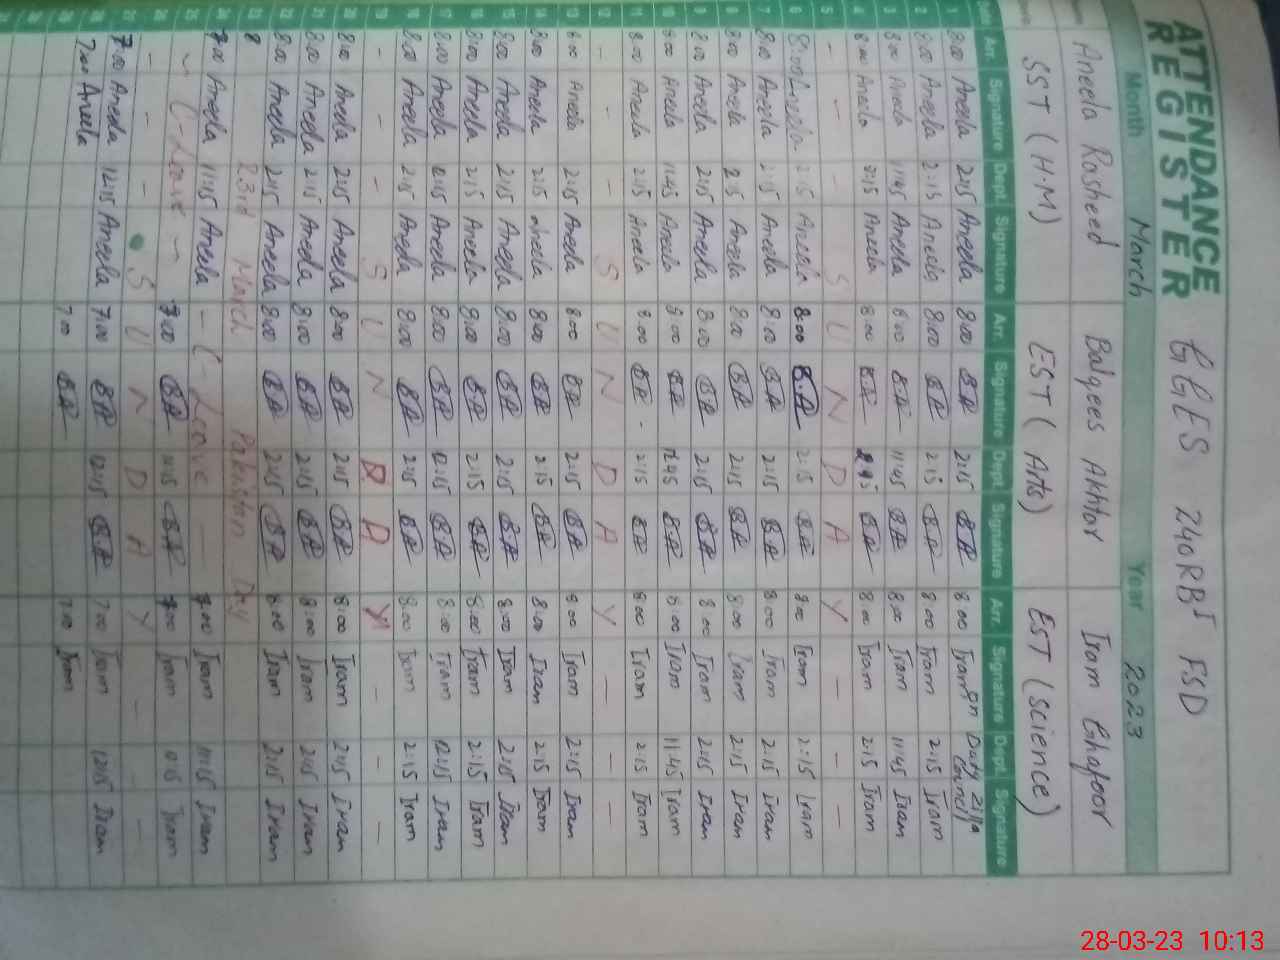 ATTENDANCE REGISTER GGES 240RB I FSD
Month March Year 2023
Name Aneela Rasheed Balqees Akhtar Iram Ghafoor
SST (H.M) EST (Arts) EST (Science)
Date Arr. Signature Dept. Signature Arr. Signature Dept. Signature Arr. Signature Dept. Signature
1 8:00 Aneela 2:15 Aneela 8:00 BA 2:15 BA 8:00 Iram on Duty Zilla Council
2 8:00 Aneela 2:15 Aneela 8:00 BA 2:15 BA 8:00 Iram 2:15 Iram
3 8:00 Aneela 11:45 Aneela 8:00 BA 11:45 BA 8:00 Iram 11:45 Iram
4 8:00 Aneela 2:15 Aneela 8:00 BA 2:15 BA 8:00 Iram 2:15 Iram
5 - - S U N D A Y - - -
6 8:00 Aneela 2:15 Aneela 8:00 B.A 2:15 BA 8:00 Iram 2:15 Iram
7 8:00 Aneela 2:15 Aneela 8:00 BA 2:15 BA 8:00 Iram 2:15 Iram
8 8:00 Aneela 2:15 Aneela 8:00 BA 2:15 BA 8:00 Iram 2:15 Iram
9 8:00 Aneela 2:15 Aneela 8:00 BA 2:15 BA 8:00 Iram 2:15 Iram
10 8:00 Aneela 11:45 Aneela 8:00 BA 11:45 BA 8:00 Iram 11:45 Iram
11 8:00 Aneela 2:15 Aneela 8:00 BA 2:15 BA 8:00 Iram 2:15 Iram
12 - - S U N D A Y - - -
13 8:00 Aneela 2:15 Aneela 8:00 BA 2:15 BA 8:00 Iram 2:15 Iram
14 8:00 Aneela 2:15 Aneela 8:00 BA 2:15 BA 8:00 Iram 2:15 Iram
15 8:00 Aneela 2:15 Aneela 8:00 BA 2:15 BA 8:00 Iram 2:15 Iram
16 8:00 Aneela 2:15 Aneela 8:00 BA 2:15 BA 8:00 Iram 2:15 Iram
17 8:00 Aneela 12:15 Aneela 8:00 BA 12:15 BA 8:00 Iram 12:15 Iram
18 8:00 Aneela 2:15 Aneela 8:00 BA 2:15 BA 8:00 Iram 2:15 Iram
19 - - - S U N D A Y - - -
20 8:00 Aneela 2:15 Aneela 8:00 BA 2:15 BA 8:00 Iram 2:15 Iram
21 8:00 Aneela 2:15 Aneela 8:00 BA 2:15 BA 8:00 Iram 2:15 Iram
22 8:00 Aneela 2:15 Aneela 8:00 BA 2:15 BA 8:00 Iram 2:15 Iram
23 8 23rd March Pakistan Day
24 7:00 Aneela 11:15 Aneela - C-Leave - 7:00 Iram 11:15 Iram
25 - C-Leave - 7:00 BA BA 7:00 Iram Iram
26 - - - S U N D A Y - - -
27 7:00 Aneela 12:15 Aneela 7:00 BA 12:15 BA 7:00 Iram 12:15 Iram
28 7:00 Aneela 7:00 BA 7:00 Iram
29
30
31
28-03-23 10:13